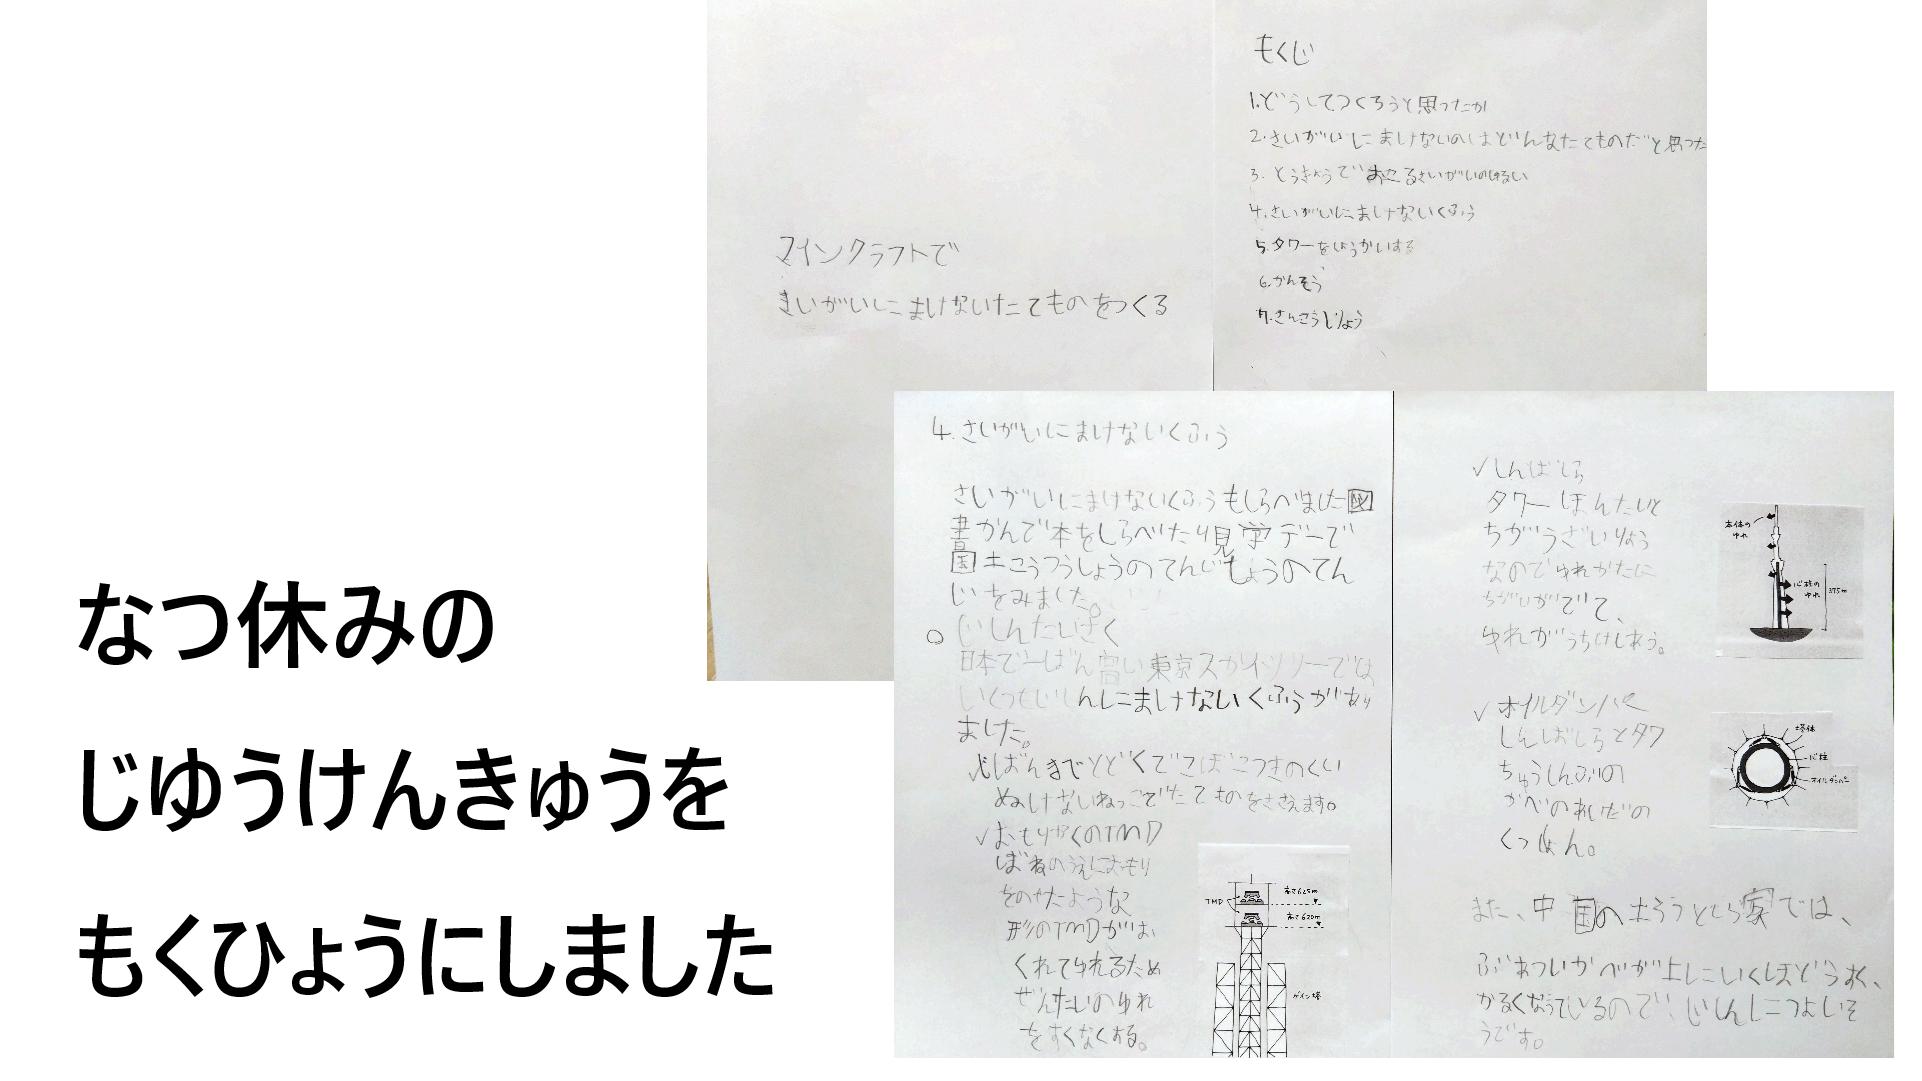 なつ休みの
じゆうけんきゅうを
もくひょうにしました
マインクラフトで
さいがいにまけないたてものをつくる
もくじ
1.どうしてつくろうと思ったか
2.さいがいにまけないのはどんなたてものだと思った
3.とうきょうでおこるさいがいのしゅるい
4.さいがいにまけないくふう
5.タワーをしょうかいする
6.かんそう
7.さんこうしりょう
4.さいがいにまけないくふう
さいがいにまけないくふうもしらべました図
書かんで本をしらべたり見学デーで
国土こうつうしょうのてんじじょうのてん
じをみました。
じしんたいさく
日本で一ばん高い東京スカイツリーでは
いくつもじしんにまけないくふうがあり
ました。
✓じばんまでとどくでこぼこつきのくい
ぬけないねっこでたてものをささえます。
✓おもりやくのTMD
ばねのうえにおもり
をのせたような
形のTMDがはん
くれてゆれるため
ぜんたいのゆれ
をすくなくする。
TMD
高さ625m
高さ620m
ゲイン塔
✓しんばしら
タワーほんたいと
ちがうざいりょう
なのでゆれかたに
ちがいがでて、
ゆれがうちけしあう。
本体の
ゆれ
心柱の
ゆれ
375m
✓オイルダンパー
しんばしらとタワー
ちゅうしんぶの
かべのあいだの
クッション。
塔体
心柱
オイルダンパー
また、中国の土ろうという家では、
ぶあついかべが上にいくほどうすく、
かるくなっているので、じしんにつよいそ
うです。